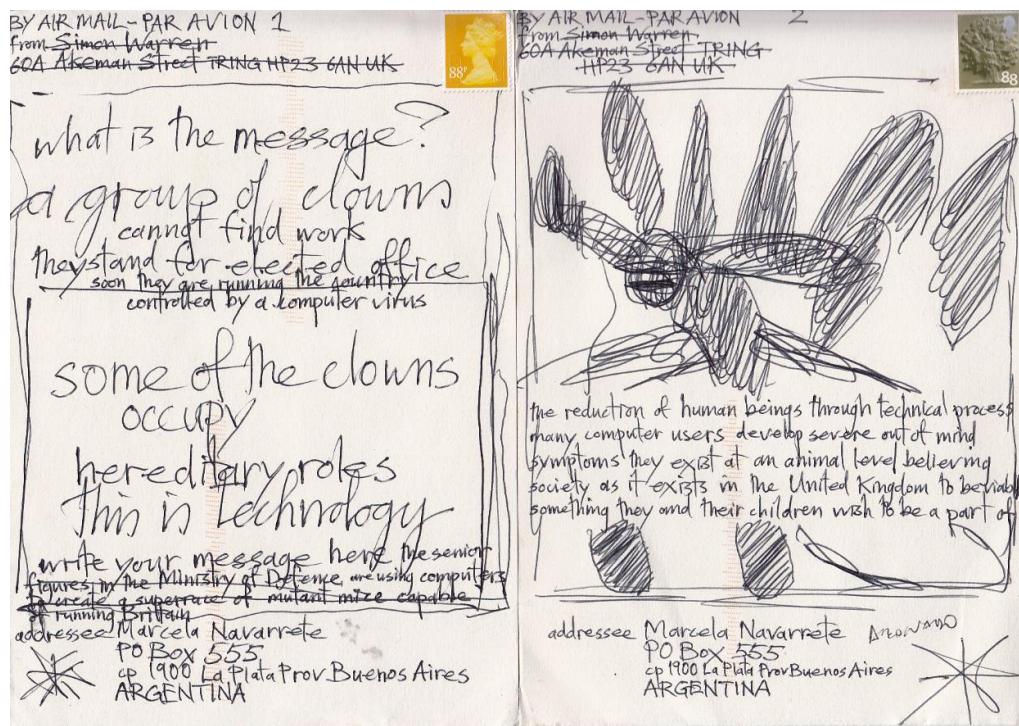 BY AIR MAIL - PAR AVION 1
from Simon Warren
60A Akeman Street TRING HP23 6AN UK
88P
what is the message?
a group of clowns
cannot find work
they stand for elected office
soon they are running the country
controlled by a computer virus
some of the clowns
occupy
hereditary roles
this is technology
write your message here the senior
figures in the Ministry of Defence are using computers
to create a superrace of mutant mice capable
of running Britain
addressee Marcela Navarrete
PO Box 555
cp 1900 La Plata Prov Buenos Aires
ARGENTINA
BY AIR MAIL - PAR AVION 2
from Simon Warren
60A Akeman Street TRING
HP23 6AN UK
88
the reduction of human beings through technical process
many computer users develop severe out of mind
symptoms they exist at an animal level believing
society as it exists in the United Kingdom to be viable
something they and their children wish to be a part of
addressee Marcela Navarrete
PO Box 555
cp 1900 La Plata Prov Buenos Aires
ARGENTINA